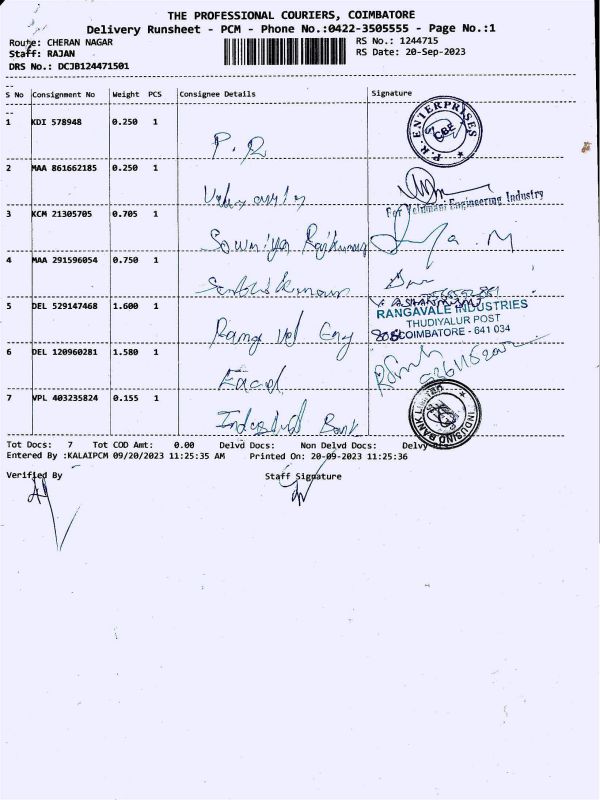 THE PROFESSIONAL COURIERS, COIMBATORE
Delivery Runsheet - PCM - Phone No.:0422-3505555 - Page No.:1
Route: CHERAN NAGAR
RS No.: 1244715
Staff: RAJAN
RS Date: 20-Sep-2023
DRS No.: DCJB124471501
S No Consignment No Weight PCS Consignee Details Signature
1 KDI 578948 0.250 1
P.R
P.R. ENTERPRISES
CBE
2 MAA 861662185 0.250 1
For Velumani Engineering Industry
3 KCM 21305705 0.705 1
Sowmiya Rajkumar
4 MAA 291596054 0.750 1
Senthilkumar
5 DEL 529147468 1.600 1
RANGAVALE INDUSTRIES
THUDIYALUR POST
COIMBATORE - 641 034
6 DEL 120960281 1.580 1
7 VPL 403235824 0.155 1
IndusInd Bank
INDUSIND BANK LIMITED
Tot Docs: 7 Tot COD Amt: 0.00 Delvd Docs: Non Delvd Docs: Delvy
Entered By :KALAIPCM 09/20/2023 11:25:35 AM Printed On: 20-09-2023 11:25:36
Verified By Staff Signature